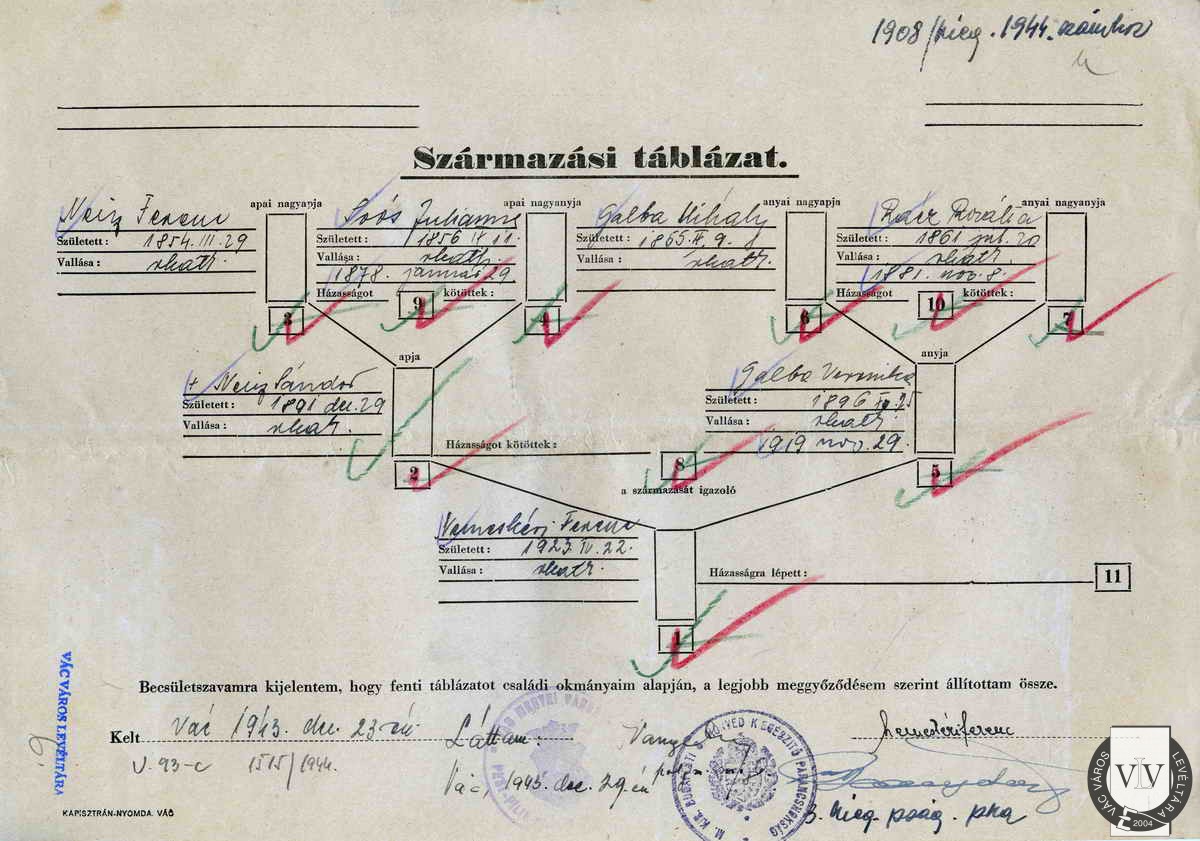 1908/kieg. 1944. számhoz
Származási táblázat.
apai nagyapja
apai nagyanyja
anyai nagyapja
anyai nagyanyja
Neiz Ferenc
Született: 1854. III. 29
Vallása: r.kath.
3
Soós Julianna
Született: 1856 II 11.
Vallása: r.kath.
1878. január 29
Házasságot kötöttek:
9
4
Galba Mihály
Született: 1865. II. 9.
Vallása: r.kath.
6
Rácz Rozália
Született: 1861 jul. 20
Vallása: r.kath.
1881. nov. 8.
Házasságot kötöttek:
10
7
apja
anyja
+ Neiz Sándor
Született: 1891 dec. 29
Vallása: r.kath.
2
Házasságot kötöttek:
8
Galba Veronika
Született: 1896 IV. 25
Vallása: r.kath.
1919 nov. 29.
5
a származását igazoló
Nemeskéri Ferenc
Született: 1923. IV. 22.
Vallása: r.kath.
1
Házasságra lépett:
11
Becsületszavamra kijelentem, hogy fenti táblázatot családi okmányaim alapján, a legjobb meggyőződésem szerint állítottam össze.
Kelt Vác 1943. dec. 23-án
V. 93-c 1515/1944.
Láttam:
Vác, 1943. dec. 29.én
Nemeskéri Ferenc
3. kieg. pság. pka
M. KIR. BUDAPESTI 3. HONVÉD KIEGÉSZÍTŐ PARANCSNOKSÁG
VÁC VÁROS LEVÉLTÁRA
KAPISZTRÁN-NYOMDA. VÁC
VÁC VÁROS LEVÉLTÁRA
VLV
2004